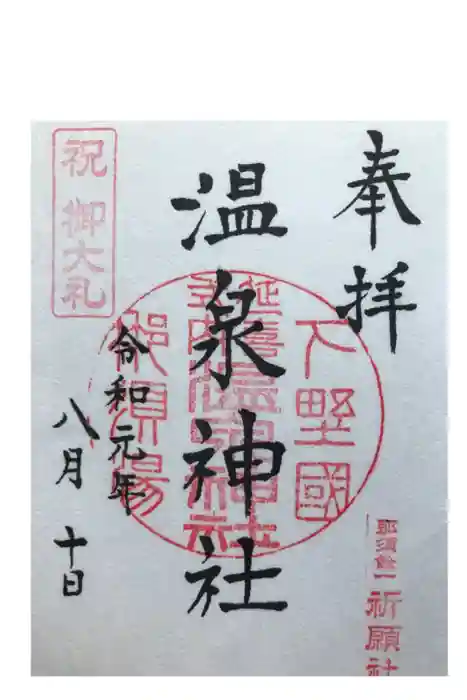 奉拝
下野國
延喜式内温泉神社
那須湯
温泉神社
令和元年
八月十日
祝 御大礼
那須餘一
祈願社